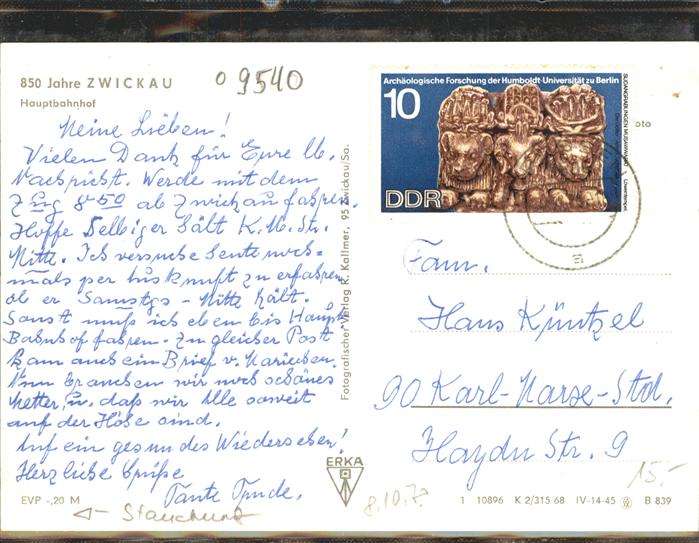 850 Jahre ZWICKAU
Hauptbahnhof
09540
Meine Lieben!
Vielen Dank für Eure lb.
Nachricht. Werde mit dem
Zug 8.50 ab Zwickau fahren.
Hoffe selbiger hält K.M.Str.
Mitte. Ich versuche heute noch-
mals per Auskunft zu erfahren
ob er Samstgs - Mitte hält.
Sonst muß ich eben bis Haupt
Bahnhof fahren. Zu gleicher Post
kam auch ein Brief v.
Nun brauchen wir noch schönes
Wetter, u. daß wir Alle soweit
auf der Höhe sind.
Auf ein gesundes Wiedersehen!
Herzliche Grüße
Tante Trude.
EVP -,20 M
Stauchung
Fotografischer Verlag R. Kallmer, 95 Zwickau/Sa.
ERKA
Archäologische Forschung der Humboldt-Universität zu Berlin
10
DDR
SUDANGRABUNGEN MUSAWWARAT
oto
Fam.
Hans Küntzel
90 Karl-Marx-Std.
Haydn Str. 9
15.-
8.10.7?
1 10896 K 2/315 68 IV-14-45 B 839